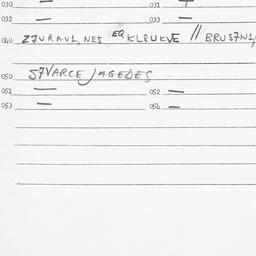 030 — 031
032 — 033 —
040 Z7URAV1, NES EQ KL8UKVE // BRUS7N1,
050 S7VARCE JAGEDES
051 — 052 —
053 — 054 —